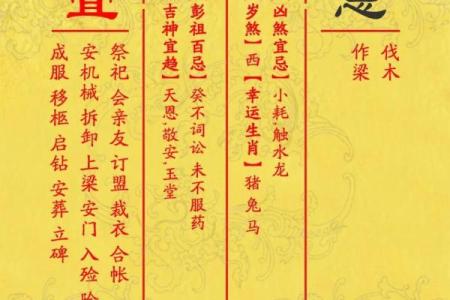 忌
伐木
作梁
凶煞宜忌】小耗,触水龙
岁煞】西【幸运生肖】猪 兔 马
彭祖百忌】癸不词讼 未不服药
吉神宜趋】天恩,敬安,玉堂
宜
祭祀 会亲友 订盟 裁衣 合帐
安机械 拆卸 上梁 安门 入殓
成服 移柩 启钻 安葬 立碑